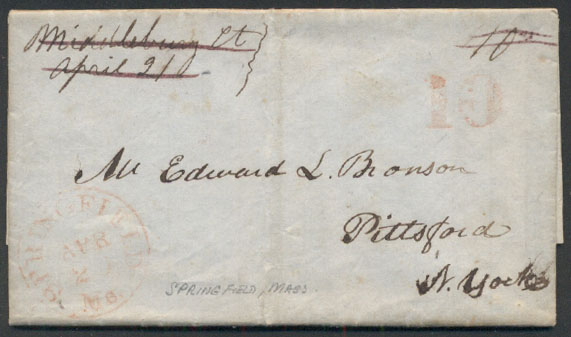 Middlebury Ct
April 21
10
10
Mr Edward L. Bronson
Pittsford
N. York
SPRINGFIELD
APR
Ms
SPRINGFIELD, MASS.